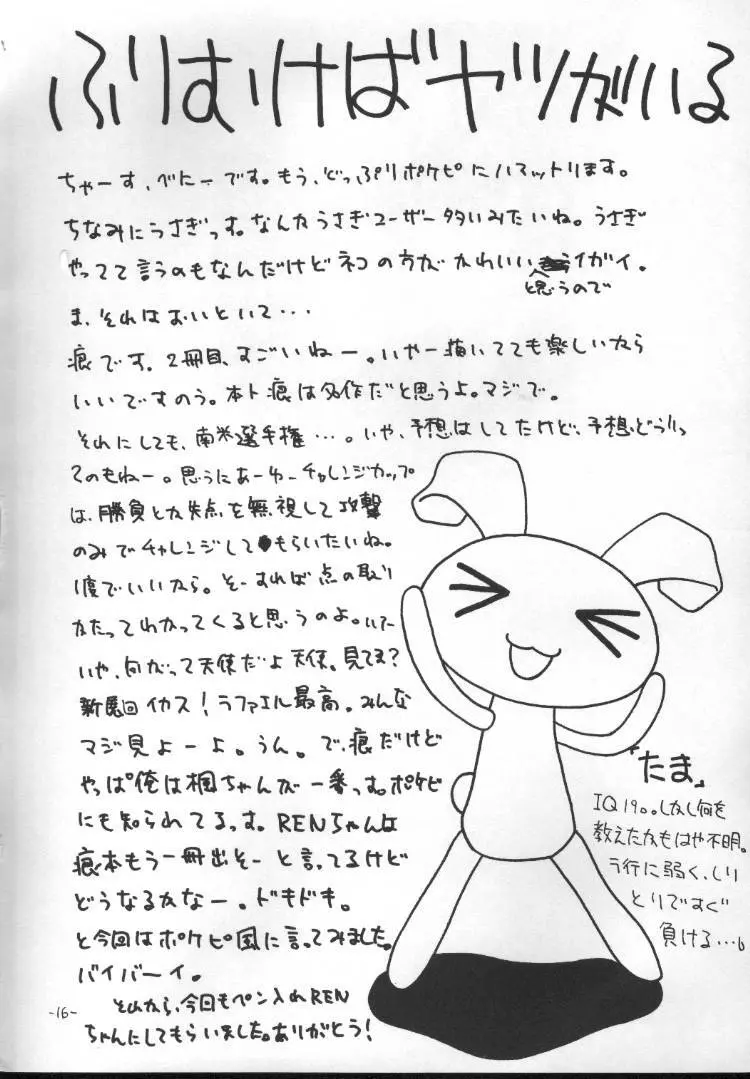 ふりむけばヤツがいる
ちゃーす、べにーです。もう、どっぷりポケピにハマットリます。
ちなみにうさぎっす。なんかうさぎユーザー多いみたいね。うさぎ
やってて言うのもなんだけどネコの方がかわいい イガイ。
と思うので
ま、それはおいといて・・・
痕です。2冊目、すごいねー。いやー描いてても楽しいから
いいですのう。本ト痕は名作だと思うよ。マジで。
それにしても、南米選手権・・・。いや、予想はしてたけど、予想どうりっ
てのもねー。思うにあーゆーチャレンジカップ
は、勝負とか失点を無視して攻撃
のみでチャレンジしてもらいたいね。
1度でいいから。そーすれば点の取り
かたってわかってくると思うのよ。
いや、向がって天使だよ天使。見てま?
新魔回イカス!ラファエル最高。みんな
マジ見よーよ。うん。で、痕だけど
やっぱ俺は楓ちゃんが一番っす。ポケピ
にも知られてるっす。RENちゃんは
痕本もう一冊出そーと言ってるけど
どうなるかなー。ドキドキ。
と今回はポケピ風に言ってみました。
バイバーイ。
それから、今回もペン入れREN
ちゃんにしてもらいました。ありがとう!
「たま」
IQ190。しかし何を
教えたかもはや不明。
ラ行に弱く、しり
とりですぐ
負ける・・・。
-16-